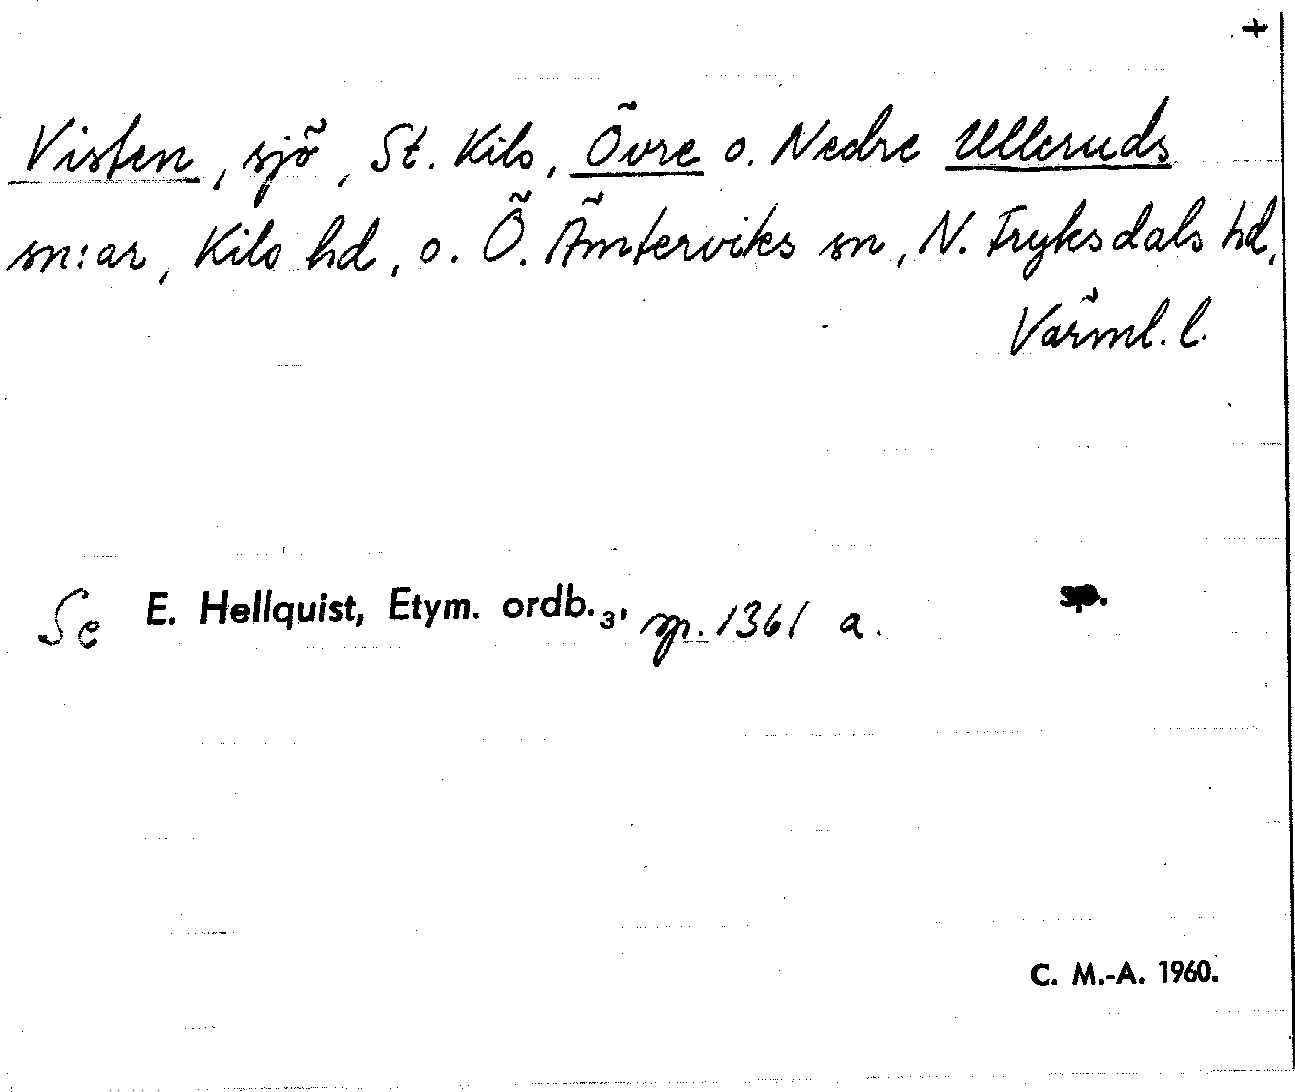 +
Visten, sjö, St. Kils, Övre o. Nedre Ulleruds
sn:ar, Kils hd, o. Ö. Ämterviks sn, N. Fryksdals hd,
Värml. l.
Se E. Hellquist, Etym. ordb.₃, sp. 1361 a. sp.
C. M.-A. 1960.